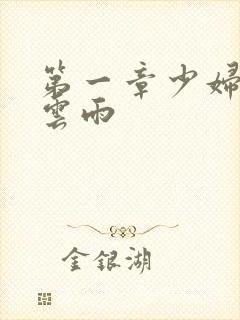 第一章少婦
雲雨
金銀湖